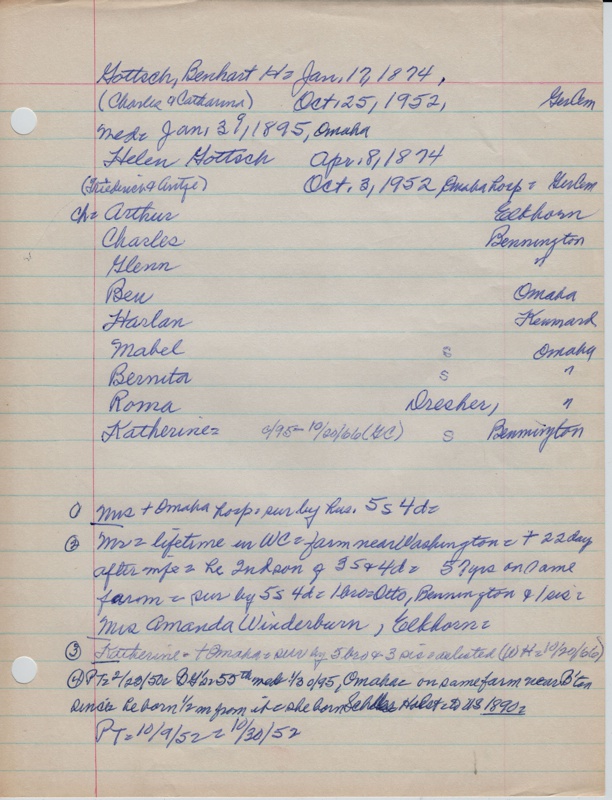 Gottsch, Benhart H= Jan. 17, 1874,
(Charles & Catharina) Oct. 25, 1952, GerCem
med= Jan. 39, 1895, Omaha
Helen Gottsch Apr. 8, 1874
(Friederich & Antje) Oct. 3, 1952 Omaha hosp = GerCem
ch= Arthur Elkhorn
Charles Bennington
Glenn "
Ben Omaha
Harlan Kennard
Mabel S Omaha
Bernita S "
Roma Dresher, "
Katherine= 9/95= 10/20/66 (GC) S Bennington
① Mrs + Omaha hosp = sur by hus. 5s 4d=
② Mr = lifetime in WC = farm near Washington = + 22 day
after wife = he 2nd son of 3s & 4d = 57 yrs on same
farm = sur by 5s 4d = 1 bro = Otto, Bennington & 1 sis =
Mrs Amanda Winderburn, Elkhorn=
③ Katherine = + Omaha = sur by 5 bro & 3 sis = as listed (WH=10/20/66)
④ PT= 2/23/50= 55th med= 1/30/95, Omaha = on same farm near B'ton
since he born 1/2 m from it = she born Holst = to US 1890=
PT= 10/9/52 = 10/30/52